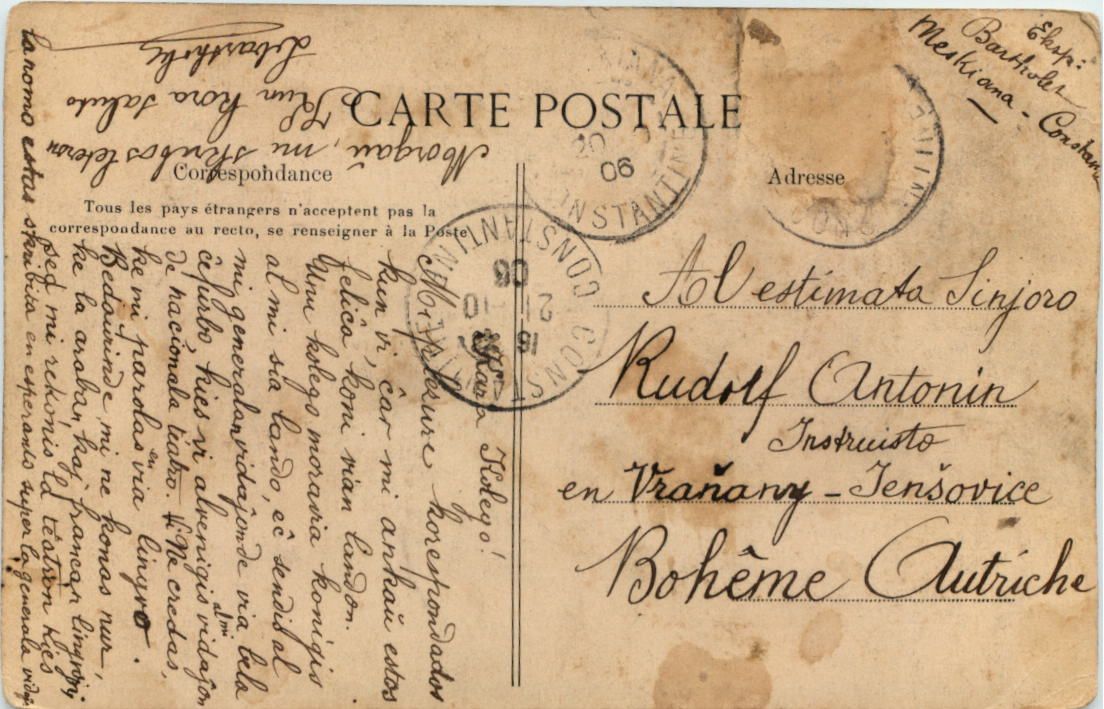 CARTE POSTALE
Correspondance
Tous les pays étrangers n'acceptent pas la
correspondance au recto, se renseigner à la Poste
Adresse
Eksp:
Bartholez
Meskiana - Constant
Al estimata Sinjoro
Rudolf Antonin
Instruisto
en Vraňany - Jenšovice
Bohême Autriche
Kara Kolego!
Mi plezure korespondados
kun vi, ĉar mi ankaŭ estos
feliĉa, koni vian landon.
Unu kolego moravia konigis
al mi sia lando, eĉ sendis al
mi generalan vidaĵon de via bela
ĉefurbo kies vi alvenigis al mi vidaĵon
de nacionala teatro. Ne credas,
ke mi parolas en via lingvo.
Bedaŭrinde mi ne konas nur,
ke la araban kaj francan lingvojn,
sed mi rekonis la teatron kies
la nomo estas skribita en esperanto super la generala vidaĵo
Morgaŭ, mi skribos leteron
Kun kora saluto
CONSTANTINE
20
06
CONSTANTINE
CONSTANTINE
16
21 10
06